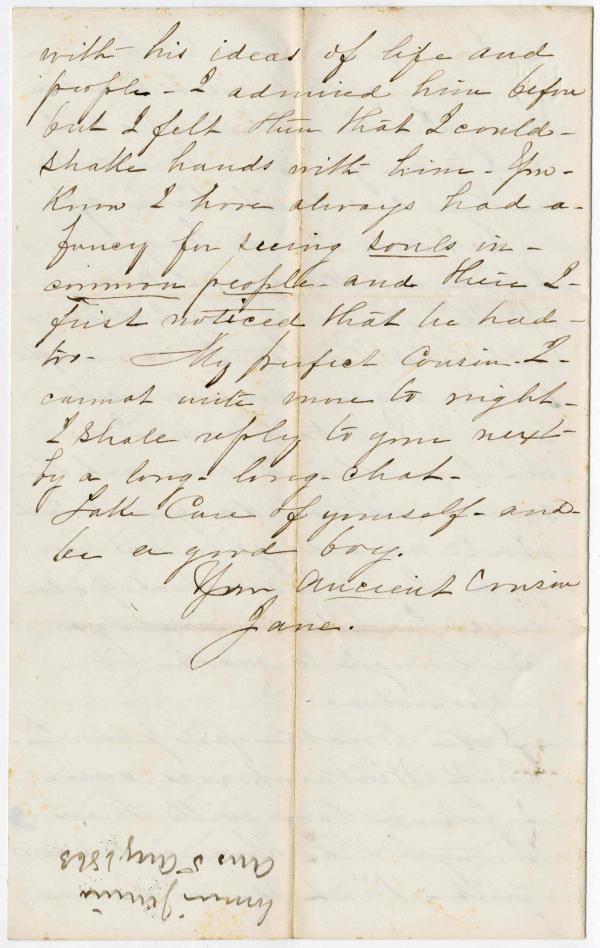 with his ideas of life and
people - I admired him before
but I felt then that I could -
shake hands with him - You -
know I have always had a -
fancy for seeing souls in -
common people - and there I -
first noticed that he had -
too - My perfect Cousin - I -
cannot write more to night -
I shall reply to your next -
by a long - long - chat -
Take Care of yourself - and -
be a good boy.
Your ancient Cousin
Jane.
Cousin Jennie
Ans 5 Aug 1863